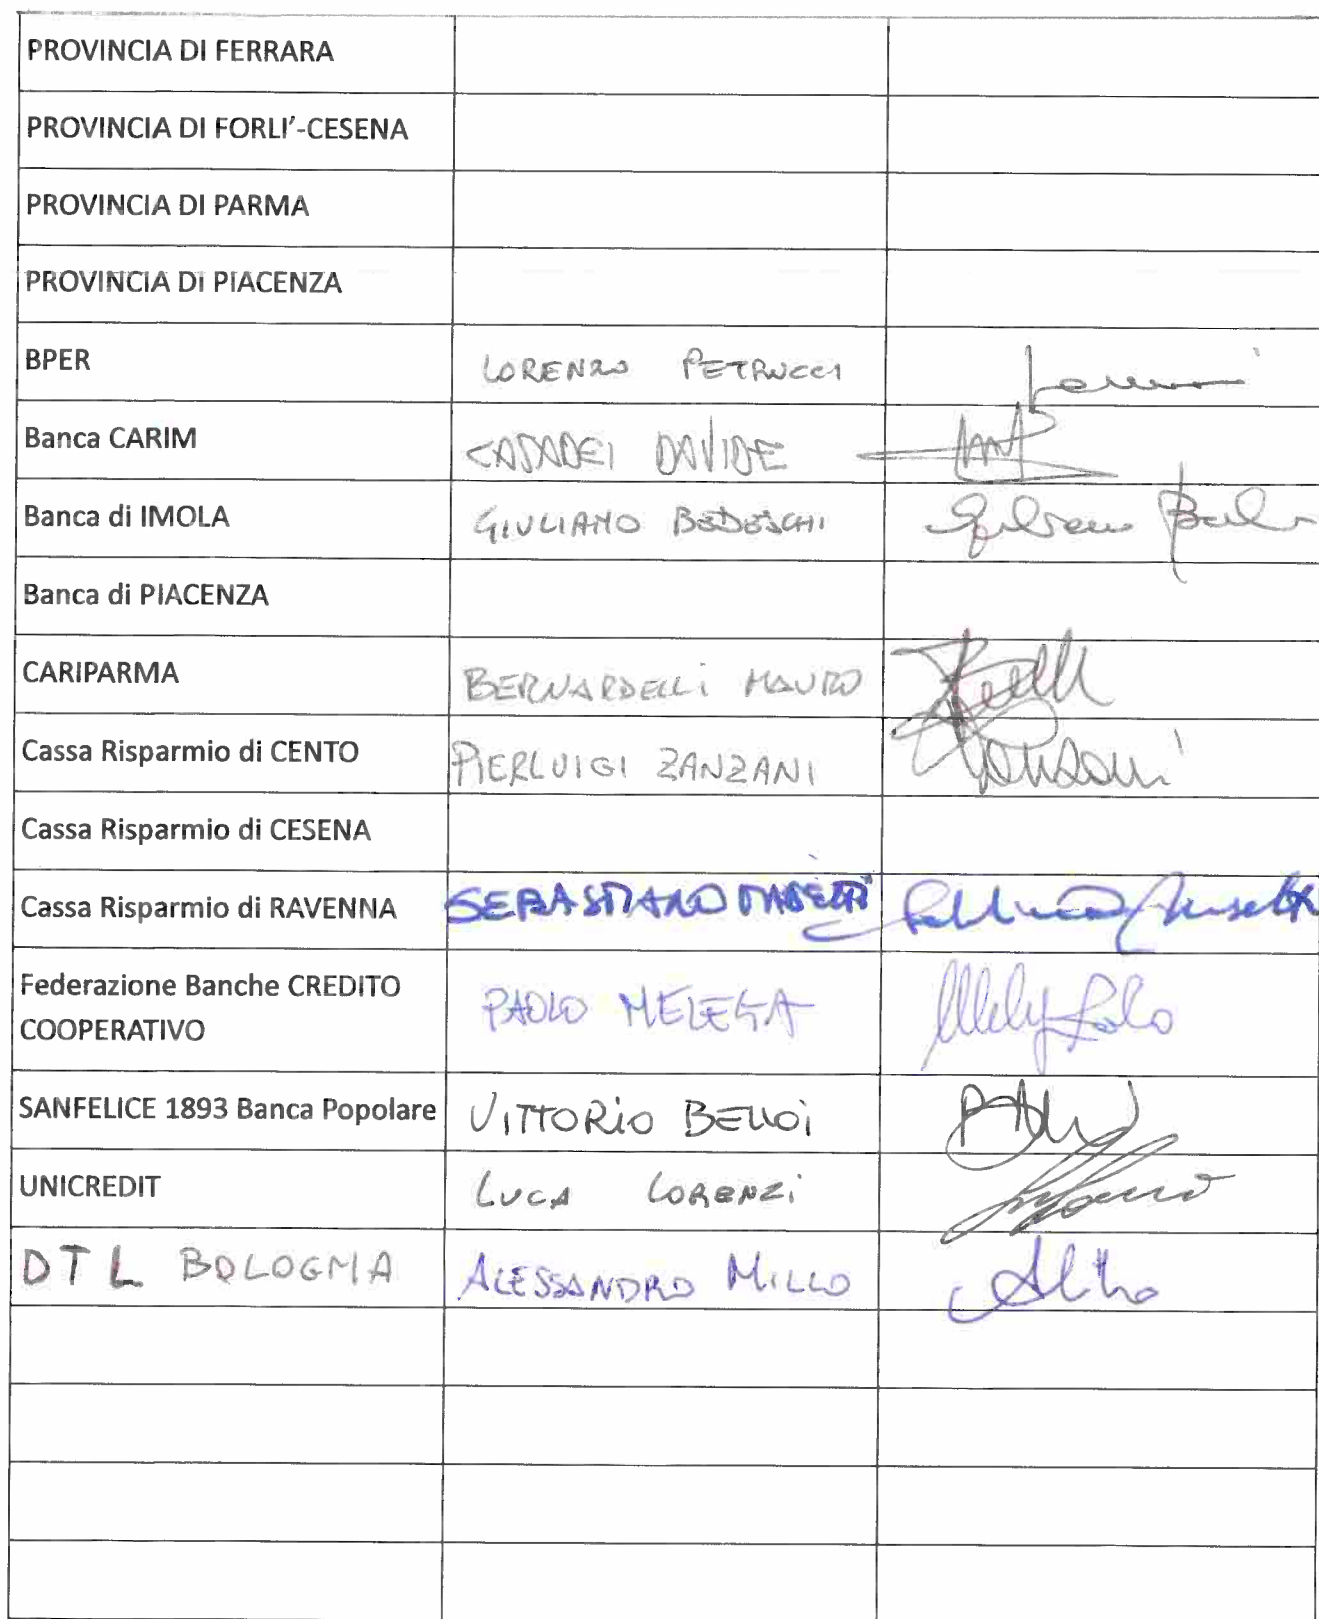 PROVINCIA DI FERRARA
PROVINCIA DI FORLI'-CESENA
PROVINCIA DI PARMA
PROVINCIA DI PIACENZA
BPER LORENZO PETRUCCI
Banca CARIM CASADEI DAVIDE
Banca di IMOLA GIULIANO BEDESCHI
Banca di PIACENZA
CARIPARMA BERNARDELLI MAURO
Cassa Risparmio di CENTO PIERLUIGI ZANZANI
Cassa Risparmio di CESENA
Cassa Risparmio di RAVENNA SEBASTIANO
Federazione Banche CREDITO
COOPERATIVO PAOLO MELEGA
SANFELICE 1893 Banca Popolare VITTORIO BELLOI
UNICREDIT LUCA LORENZI
DTL BOLOGNA ALESSANDRO MILLO